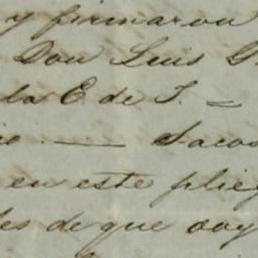 y firmaron
Don Luis G
la E de S.
Jacos
en este plieg
les de que doy